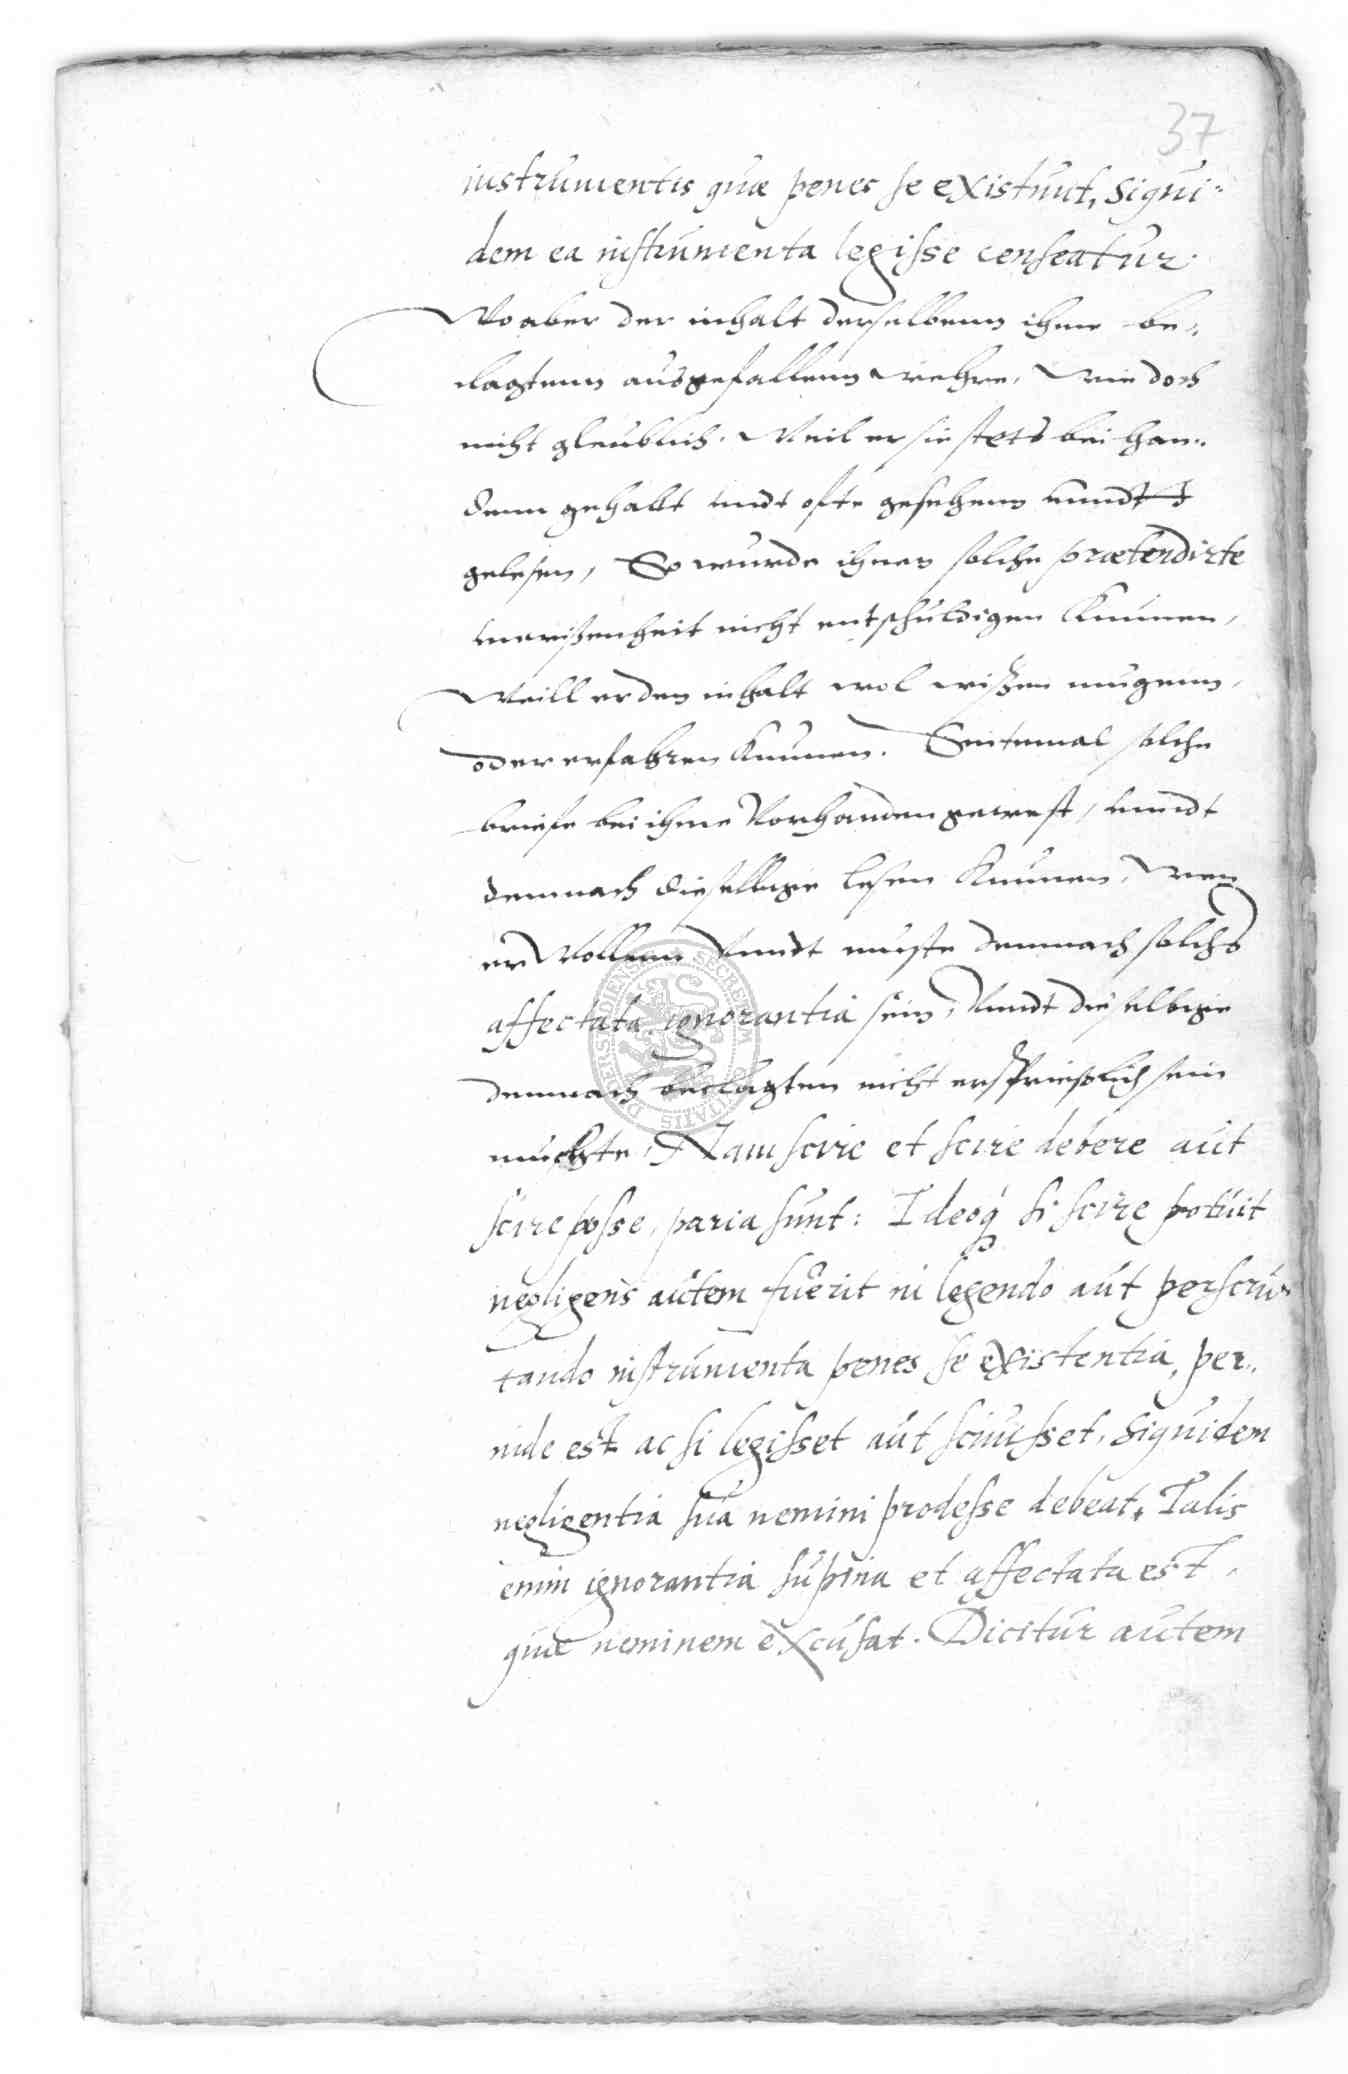 37
instrumentis quæ penes se existunt, Siqui=
dem ea instrumenta legisse censeatur.
Wo aber der inhalt derselbenn ihme be=
clagtenn ausgefallenn wehre, Wie doch
nicht gleublich. Weil er sie stets bei han=
denn gehabt undt ofte gesehenn unndt
gelesen, So wurde ihnen solche prætendirte
unwißenheit nicht entschuldigen kunnen,
Weill er den inhalt wol wißen mugenn,
oder erfahren kunnen. Sintemal solche
briefe bei ihme Vorhanden gewest, unndt
demnach dieselbige lesen kunnen, Wen
er Wollenn Unndt muste demnach solchs
affectata ignorantia sein, Unndt dieselbige
demnach beclagten nicht ersprießlich sein
muchte, Nam scire et scire debere aut
scire posse, paria sunt: Ideoq́ si scire potuit
negligens autem fuerit in legendo aut perscru=
tando instrumenta penes se existentia, per=
inde est ac si legisset aut scivisset, Siquidem
negligentia sua nemini prodesse debeat, Talis
enim ignorantia supina et affectata est,
quæ neminem excusat. Dicitur autem
SECRETUM CIVITATIS